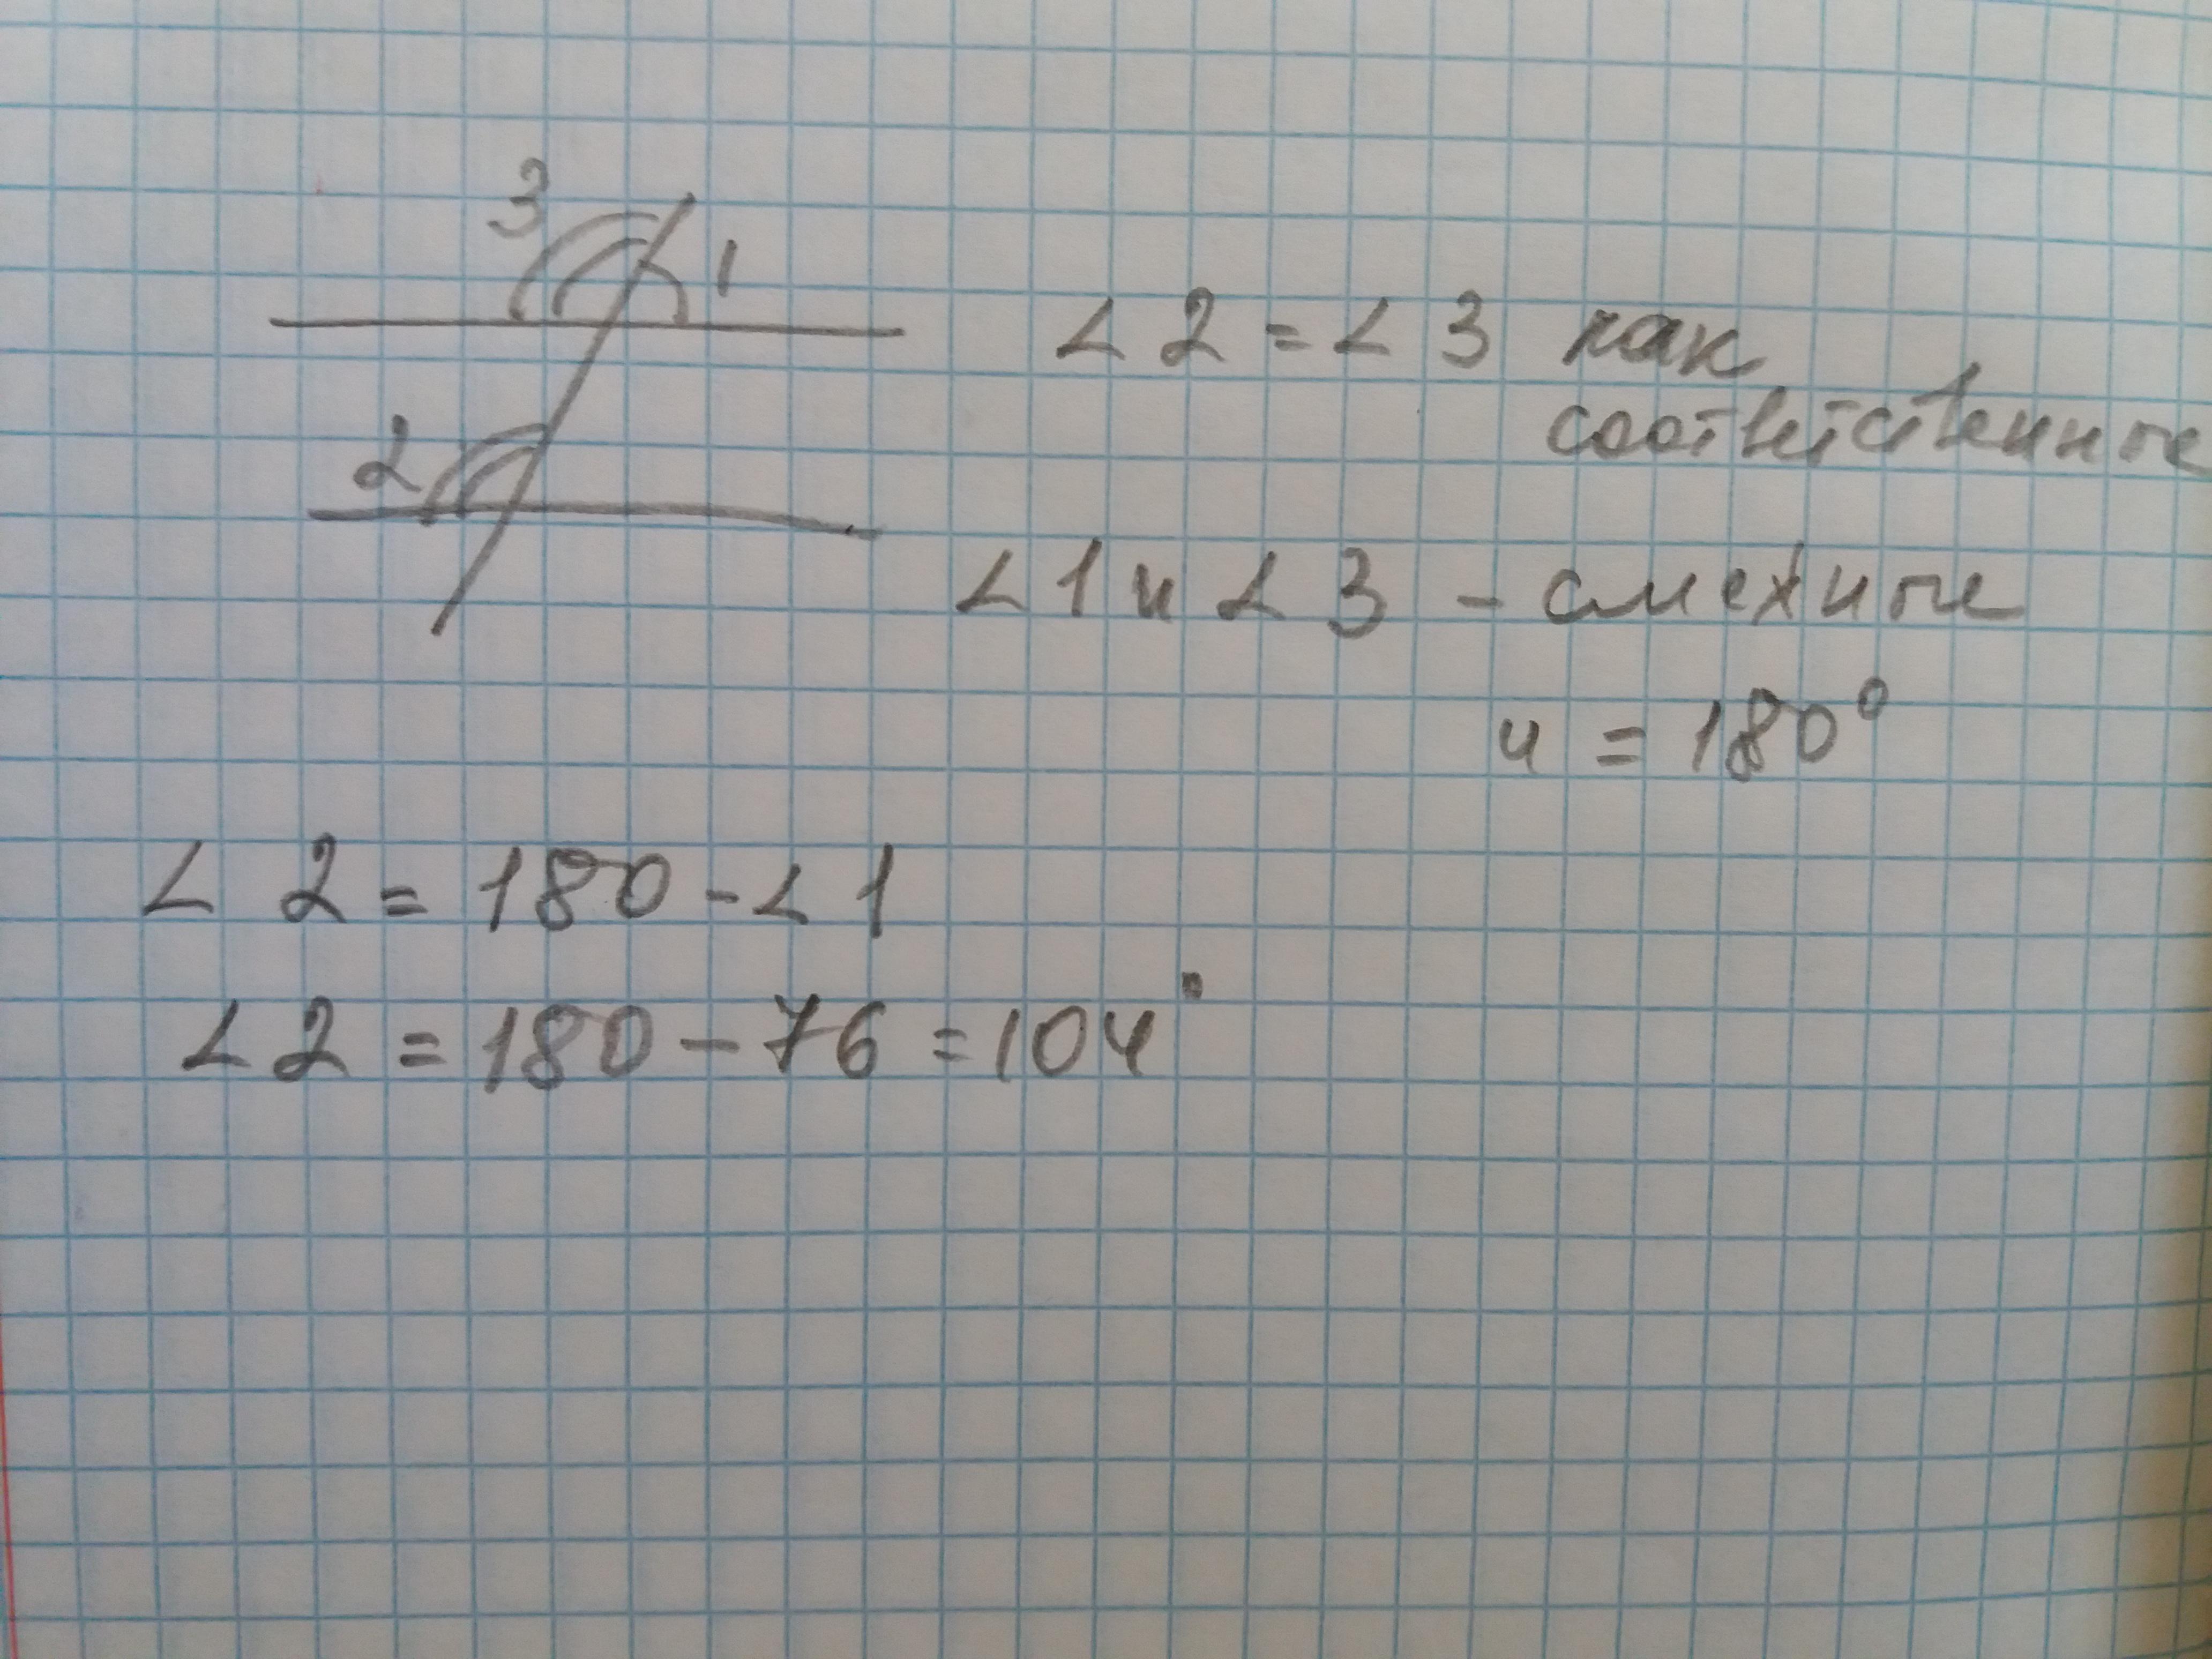 3
1
2
∠2 = ∠3 как
соответственные
∠1 и ∠3 - смежные
и = 180°
∠2 = 180 - ∠1
∠2 = 180 - 76 = 104°